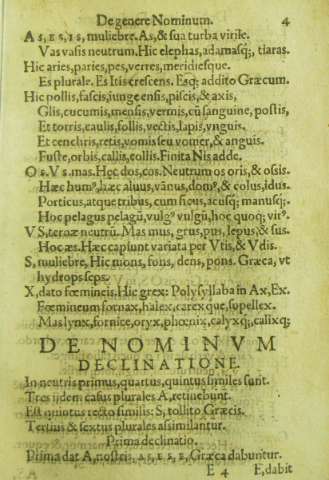 De genere Nominum. 4
As, es, is, muliebre. As, & sua turba virile.
Vas vasis neutrum. Hic elephas, adamasq;, tiaras.
Hic aries, paries, pes, verres, meridiesque.
Es plurale. Es Itis crescens. Esq; addito Græcum.
Hic pollis, fascis, iunge ensis, piscis, & axis,
Glis, cucumis, mensis, vermis, cū sanguine, postis,
Et torris, caulis, follis, vectis, lapis, vnguis.
Et cenchris, retis, vomis seu vomer, & anguis.
Fuste, orbis, callis, collis. Finita Nis adde.
Os. Vs mas. Hęc dos, cos. Neutrum os oris, & ossis.
Hæc humꝰ, hæc aluus, vānus, domꝰ, & colus, idus.
Porticus, atque tribus, cum ficus, acusq; manusq;.
Hoc pelagus pelagū, vulgꝰ vulgū, hoc quoq; virꝰ.
VS, teroæ neutrū. Mas mus, grus, pus, lepus, & sus.
Hoc æs. Hæc capiunt variata per Vtis, & Vdis.
S, muliebre, Hic mons, fons, dens, pons. Græca, vt
hydrops seps.
X, dato fœmineis. Hic grex: Polysyllaba in Ax, Ex.
Fœmineum fornax, halex, carex que, supellex.
Mas lynx, fornice, oryx, phœnix, calyxq;, calixq;
DE NOMINVM
DECLINATIONE.
In neutris primus, quartus, quintus similes sunt.
Tres ijdem casus plurales A, retinebunt.
Est quintus recto similis: S, tollito Græcis.
Tertius & sextus plurales assimilantur.
Prima declinatio.
Prima dat A, nostris. as, es, e, Græca dabuntur.
E 4 E, dabit